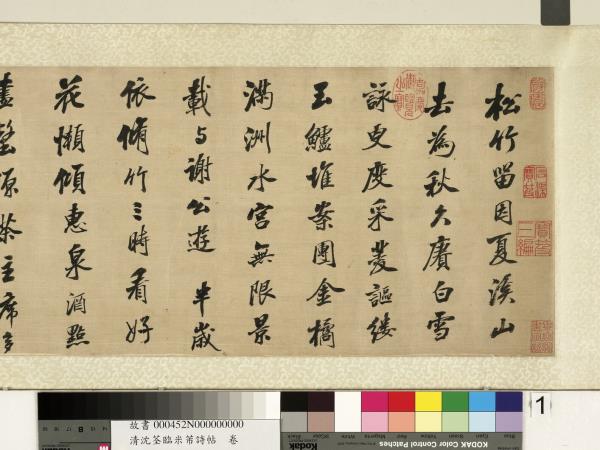 松竹留因夏溪山
去為秋久賡白雪
詠更度采菱謳縷
玉鱸堆案團金橘
滿洲水宮無限景
載与謝公遊 半歲
依脩竹三時看好
花懶傾惠泉酒點
盡壑源茶主席多
故書 000452N000000000
清沈荃臨米芾詩帖 卷
KODAK Color Control Patches
1